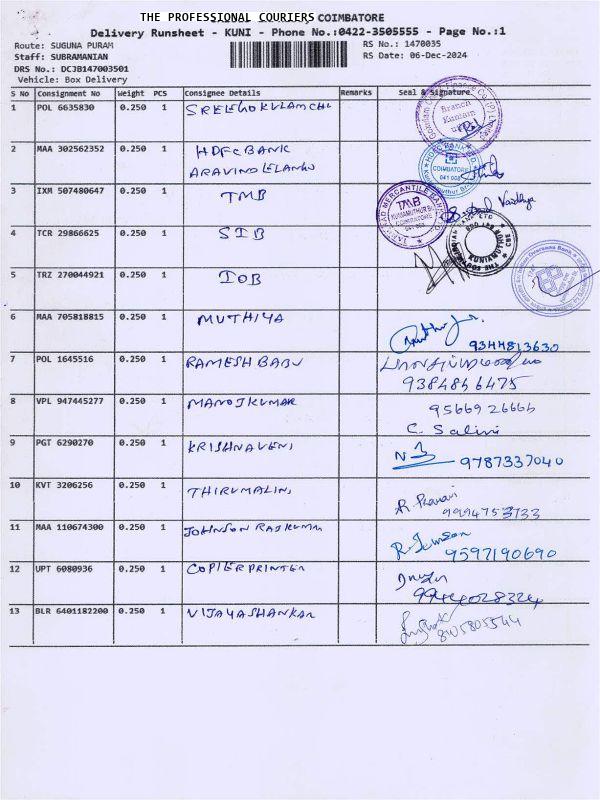 THE PROFESSIONAL COURIERS COIMBATORE
Delivery Runsheet - KUNI - Phone No.:0422-3505555 - Page No.:1
Route: SUGUNA PURAM
RS No.: 1470035
Staff: SUBRAMANIAN
RS Date: 06-Dec-2024
DRS No.: DCJB147003501
Vehicle: Box Delivery
S No Consignment No Weight PCS Consignee Details Remarks Seal & Signature
1 POL 6635830 0.250 1
Branch
Kuniam
2 MAA 302562352 0.250 1 HDFC BANK
COIMBATORE
641 008
3 IXM 507480647 0.250 1 TMB
TMB
COIMBATORE
4 TCR 29866625 0.250 1 SIB
5 TRZ 270044921 0.250 1 IOB
6 MAA 705818815 0.250 1 MUTHIYA
9344813630
7 POL 1645516 0.250 1 RAMESH BABU
9384846475
8 VPL 947445277 0.250 1 MANOJ KUMAR
C. Salini
9 PGT 6290270 0.250 1 KRISHNAVENI
9787337040
10 KVT 3206256 0.250 1
11 MAA 110674300 0.250 1 JOHNSON RAJKUMAR
9597190690
12 UPT 6080936 0.250 1 COPIER PRINTER
13 BLR 6401182200 0.250 1 VIJAYASHANKAR